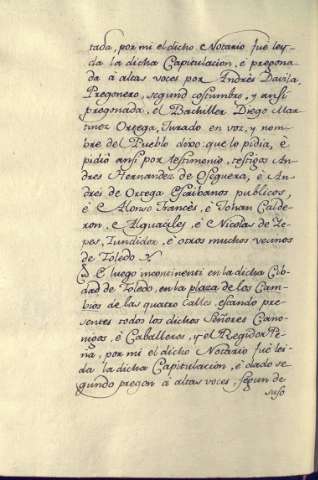 tada, por mi el dicho Notario fuè ley-
da la dicha Capitulacion, è pregona-
da à altas voces por Andrès Davila,
Pregonero, segund costumbre, y ansi
pregonada, el Bachiller Diego Mar-
tinez Ortega, Jurado en voz, y nom-
bre del Pueblo dixo: que lo pidia, è
pidiò ansi por testimonio, testigos An-
dres Hernandez de Oseguera, è An-
dres de Ortega Escribanos publicos,
è Alonso Francès, è Johan Calde-
ron, è Alguaciles, è Nicolas de Ye-
pes, Tundidor, è otros muchos vecinos
de Toledo.
E luego incontinenti en la dicha Cib-
dad de Toledo, en la plaza de los Cam-
bios de las quatro Calles, estando pre-
sentes todos los dichos Señores Cano-
nigos, è Caballeros, y el Regidor Pe-
ña, por mi el dicho Notario fuè lei-
da la dicha Capitulacion, è dado se-
gundo pregon à altas voces, segun de
suso